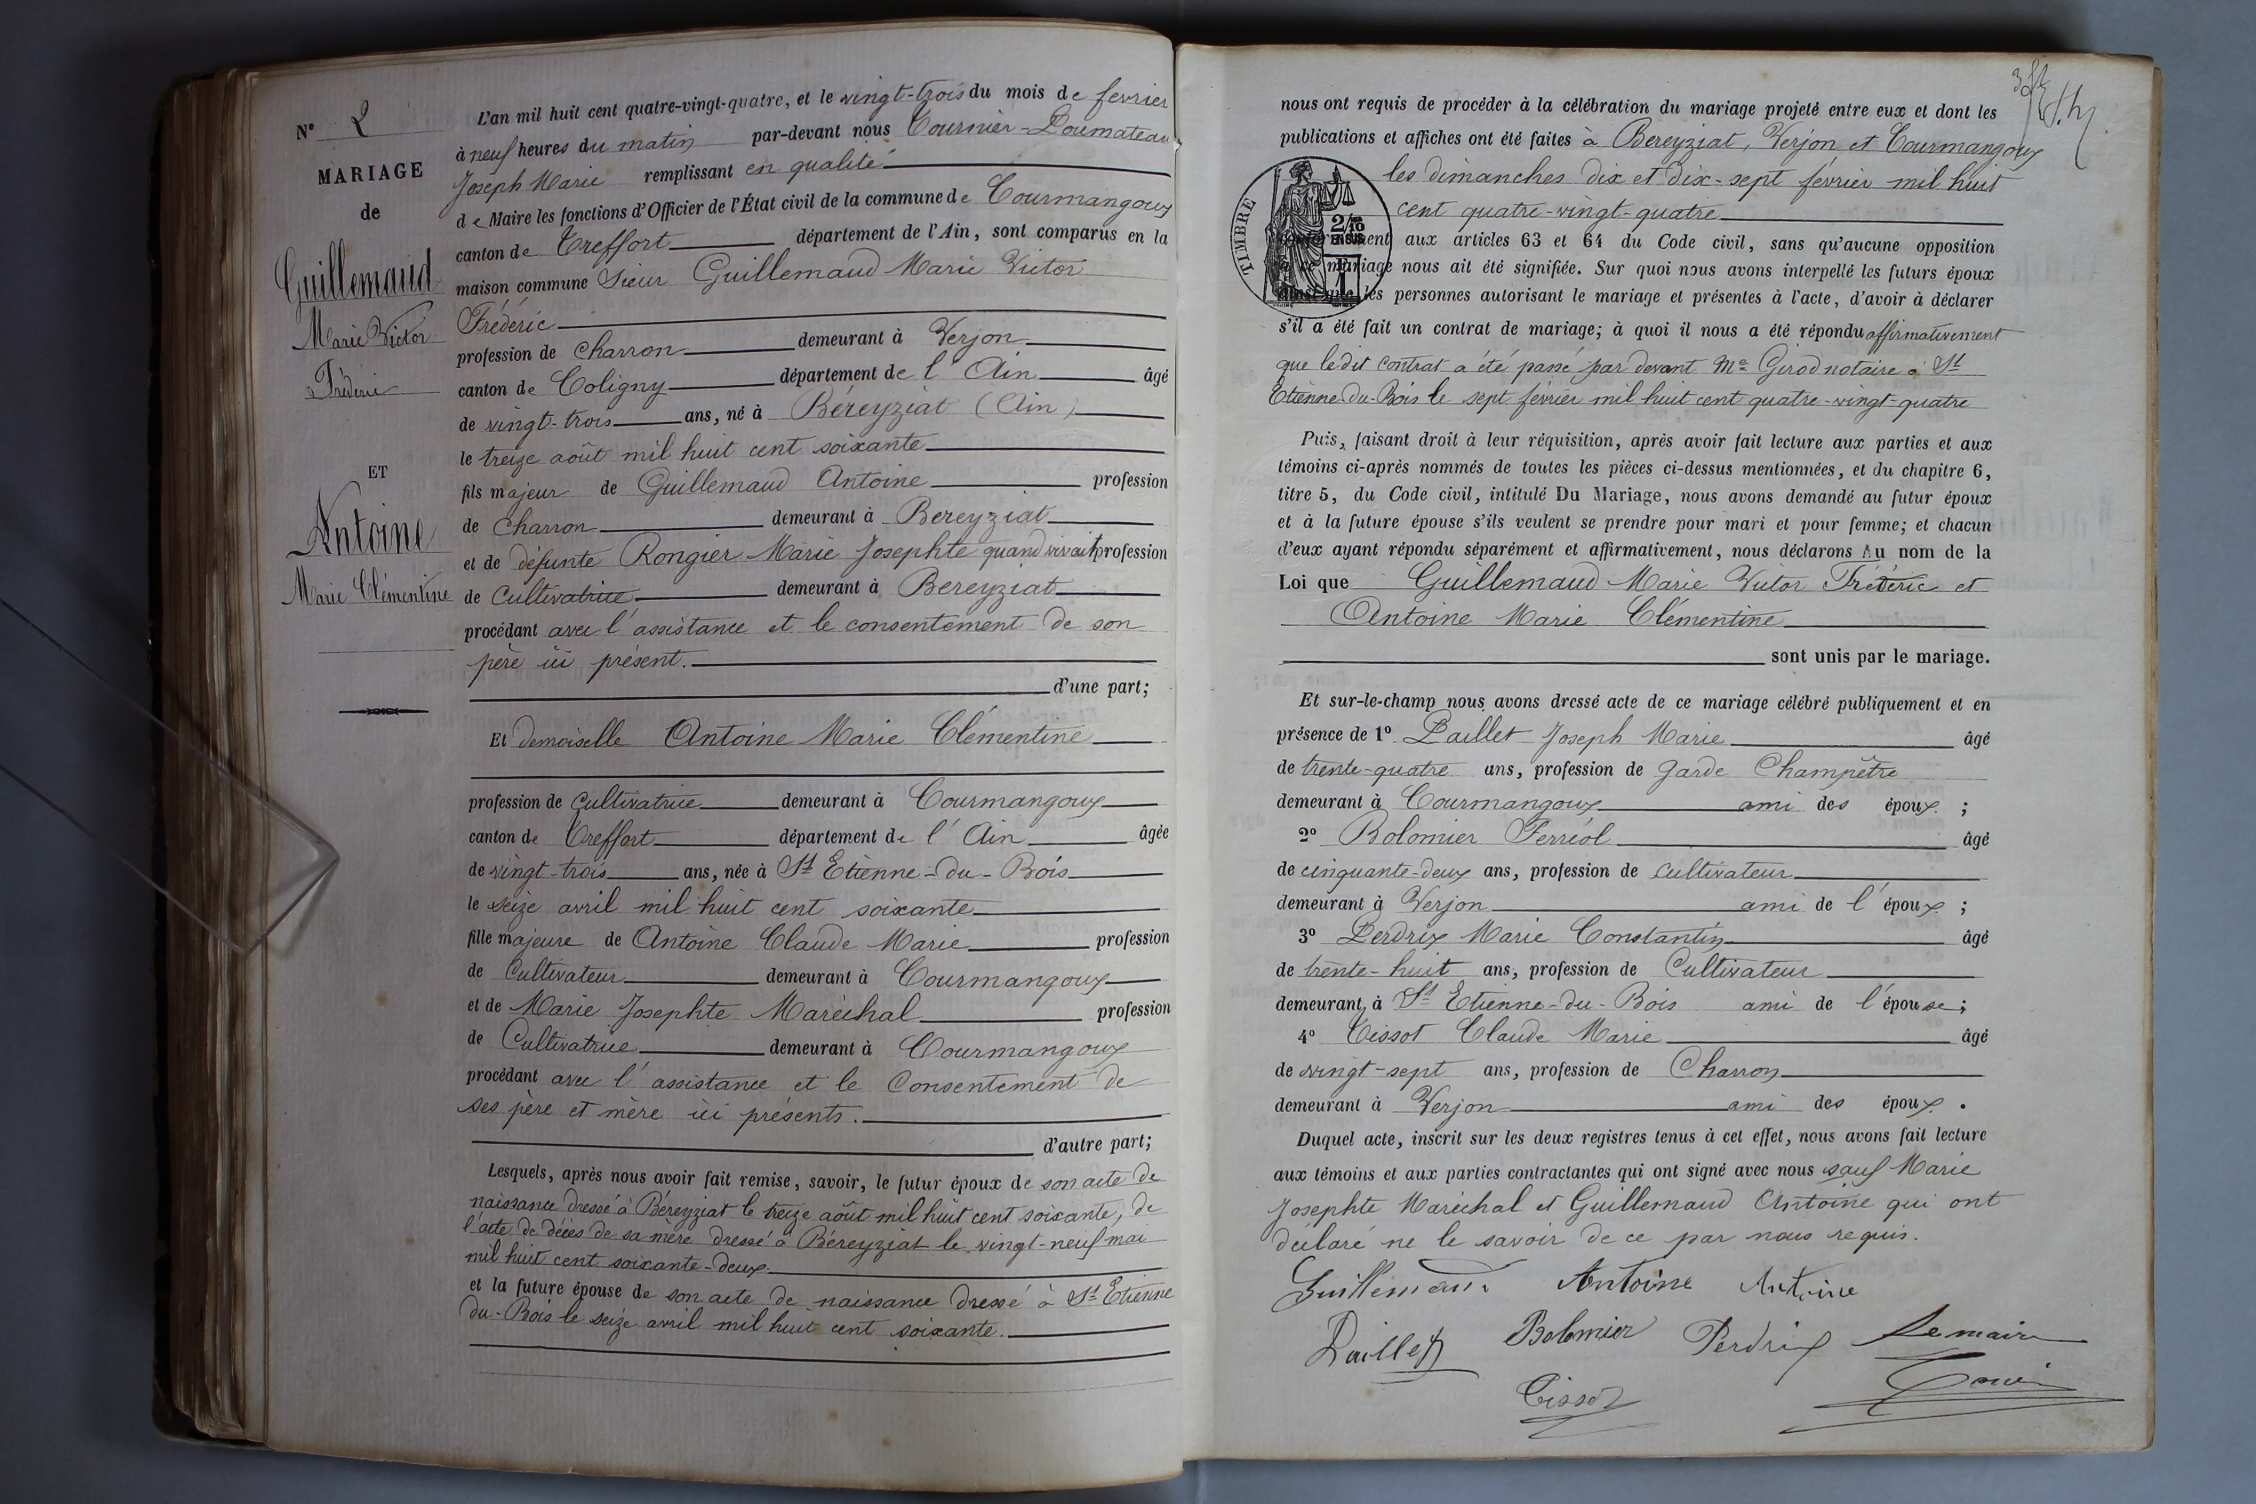 N° 2
MARIAGE
de
Guillemaud
Marie Victor
Fréderic
ET
Antoine
Marie Clémentine
L'an mil huit cent quatre-vingt-quatre, et le vingt-trois du mois de fevrier
à neuf heures du matin par-devant nous Cournier-Loumateau
Joseph Marie remplissant en qualité
de Maire les fonctions d'Officier de l'État civil de la commune de Courmangoux
canton de Treffort département de l'Ain, sont comparus en la
maison commune Sieur Guillemaud Marie Victor
Fréderic
profession de Charron demeurant à Verjon
canton de Coligny département de l'Ain âgé
de vingt-trois ans, né à Béreyziat (Ain)
le treize août mil huit cent soixante
fils majeur de Guillemaud Antoine profession
de Charron demeurant à Bereyziat
et de défunte Rongier Marie Josephte quand vivait profession
de Cultivatrice demeurant à Bereyziat
procédant avec l'assistance et le consentement de son
père ici présent.
d'une part;
Et demoiselle Antoine Marie Clémentine
profession de Cultivatrice demeurant à Courmangoux
canton de Treffort département de l'Ain âgée
de vingt-trois ans, née à St Etienne-du-Bois
le seize avril mil huit cent soixante
fille majeure de Antoine Claude Marie profession
de Cultivateur demeurant à Courmangoux
et de Marie Josephte Maréchal profession
de Cultivatrice demeurant à Courmangoux
procédant avec l'assistance et le Consentement de
ses père et mère ici présents.
d'autre part;
Lesquels, après nous avoir fait remise, savoir, le futur époux de son acte de
naissance dressé à Béreyziat le treize août mil huit cent soixante, de
l'acte de décès de sa mère dressé à Béreyziat le vingt-neuf mai
mil huit cent soixante-deux
et la future épouse de son acte de naissance dressé à St Etienne
du-Bois le seize avril mil huit cent soixante.
nous ont requis de procéder à la célébration du mariage projeté entre eux et dont les
publications et affiches ont été faites à Bereyziat, Verjon et Courmangoux
les dimanches dix et dix-sept février mil huit
cent quatre-vingt-quatre
TIMBRE
2/10
EN SUS
conformément aux articles 63 et 64 du Code civil, sans qu'aucune opposition
à ce mariage nous ait été signifiée. Sur quoi nous avons interpellé les futurs époux
ainsi que les personnes autorisant le mariage et présentes à l'acte, d'avoir à déclarer
s'il a été fait un contrat de mariage; à quoi il nous a été répondu affirmativement
que ledit contrat a été passé par devant Me Girod notaire à St
Etienne-du-Bois le sept février mil huit cent quatre-vingt-quatre
Puis, faisant droit à leur réquisition, après avoir fait lecture aux parties et aux
témoins ci-après nommés de toutes les pièces ci-dessus mentionnées, et du chapitre 6,
titre 5, du Code civil, intitulé Du Mariage, nous avons demandé au futur époux
et à la future épouse s'ils veulent se prendre pour mari et pour femme; et chacun
d'eux ayant répondu séparément et affirmativement, nous déclarons Au nom de la
Loi que Guillemaud Marie Victor Fréderic et
Antoine Marie Clémentine
sont unis par le mariage.
Et sur-le-champ nous avons dressé acte de ce mariage célébré publiquement et en
présence de 1° Paillet Joseph Marie âgé
de trente-quatre ans, profession de garde Champêtre
demeurant à Courmangoux ami des époux ;
2° Bolomier Ferréol âgé
de cinquante-deux ans, profession de cultivateur
demeurant à Verjon ami de l'époux ;
3° Perdrix Marie Constantin âgé
de trente-huit ans, profession de Cultivateur
demeurant à St Etienne-du-Bois ami de l'épouse ;
4° Tissot Claude Marie âgé
de vingt-sept ans, profession de Charron
demeurant à Verjon ami des époux .
Duquel acte, inscrit sur les deux registres tenus à cet effet, nous avons fait lecture
aux témoins et aux parties contractantes qui ont signé avec nous sauf Marie
Josephte Maréchal et Guillemaud Antoine qui ont
déclaré ne le savoir de ce par nous requis.
Guillemaud Antoine Antoine
Paillet Bolomier Perdrix Le maire
Tissot